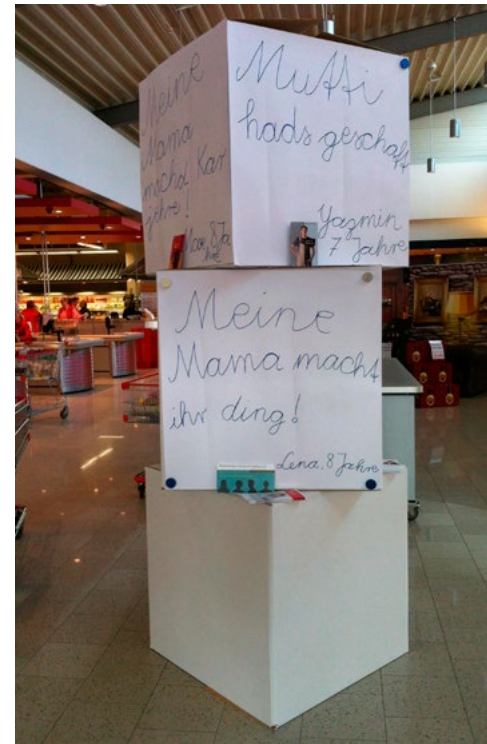 Meine
Mama
machd Kar
jehre!
Max, 8 Ja
hre
Mutti
hads geschaft
Yazmin
7 Jahre
Meine
Mama macht
ihr ding!
Lena, 8 Jahre